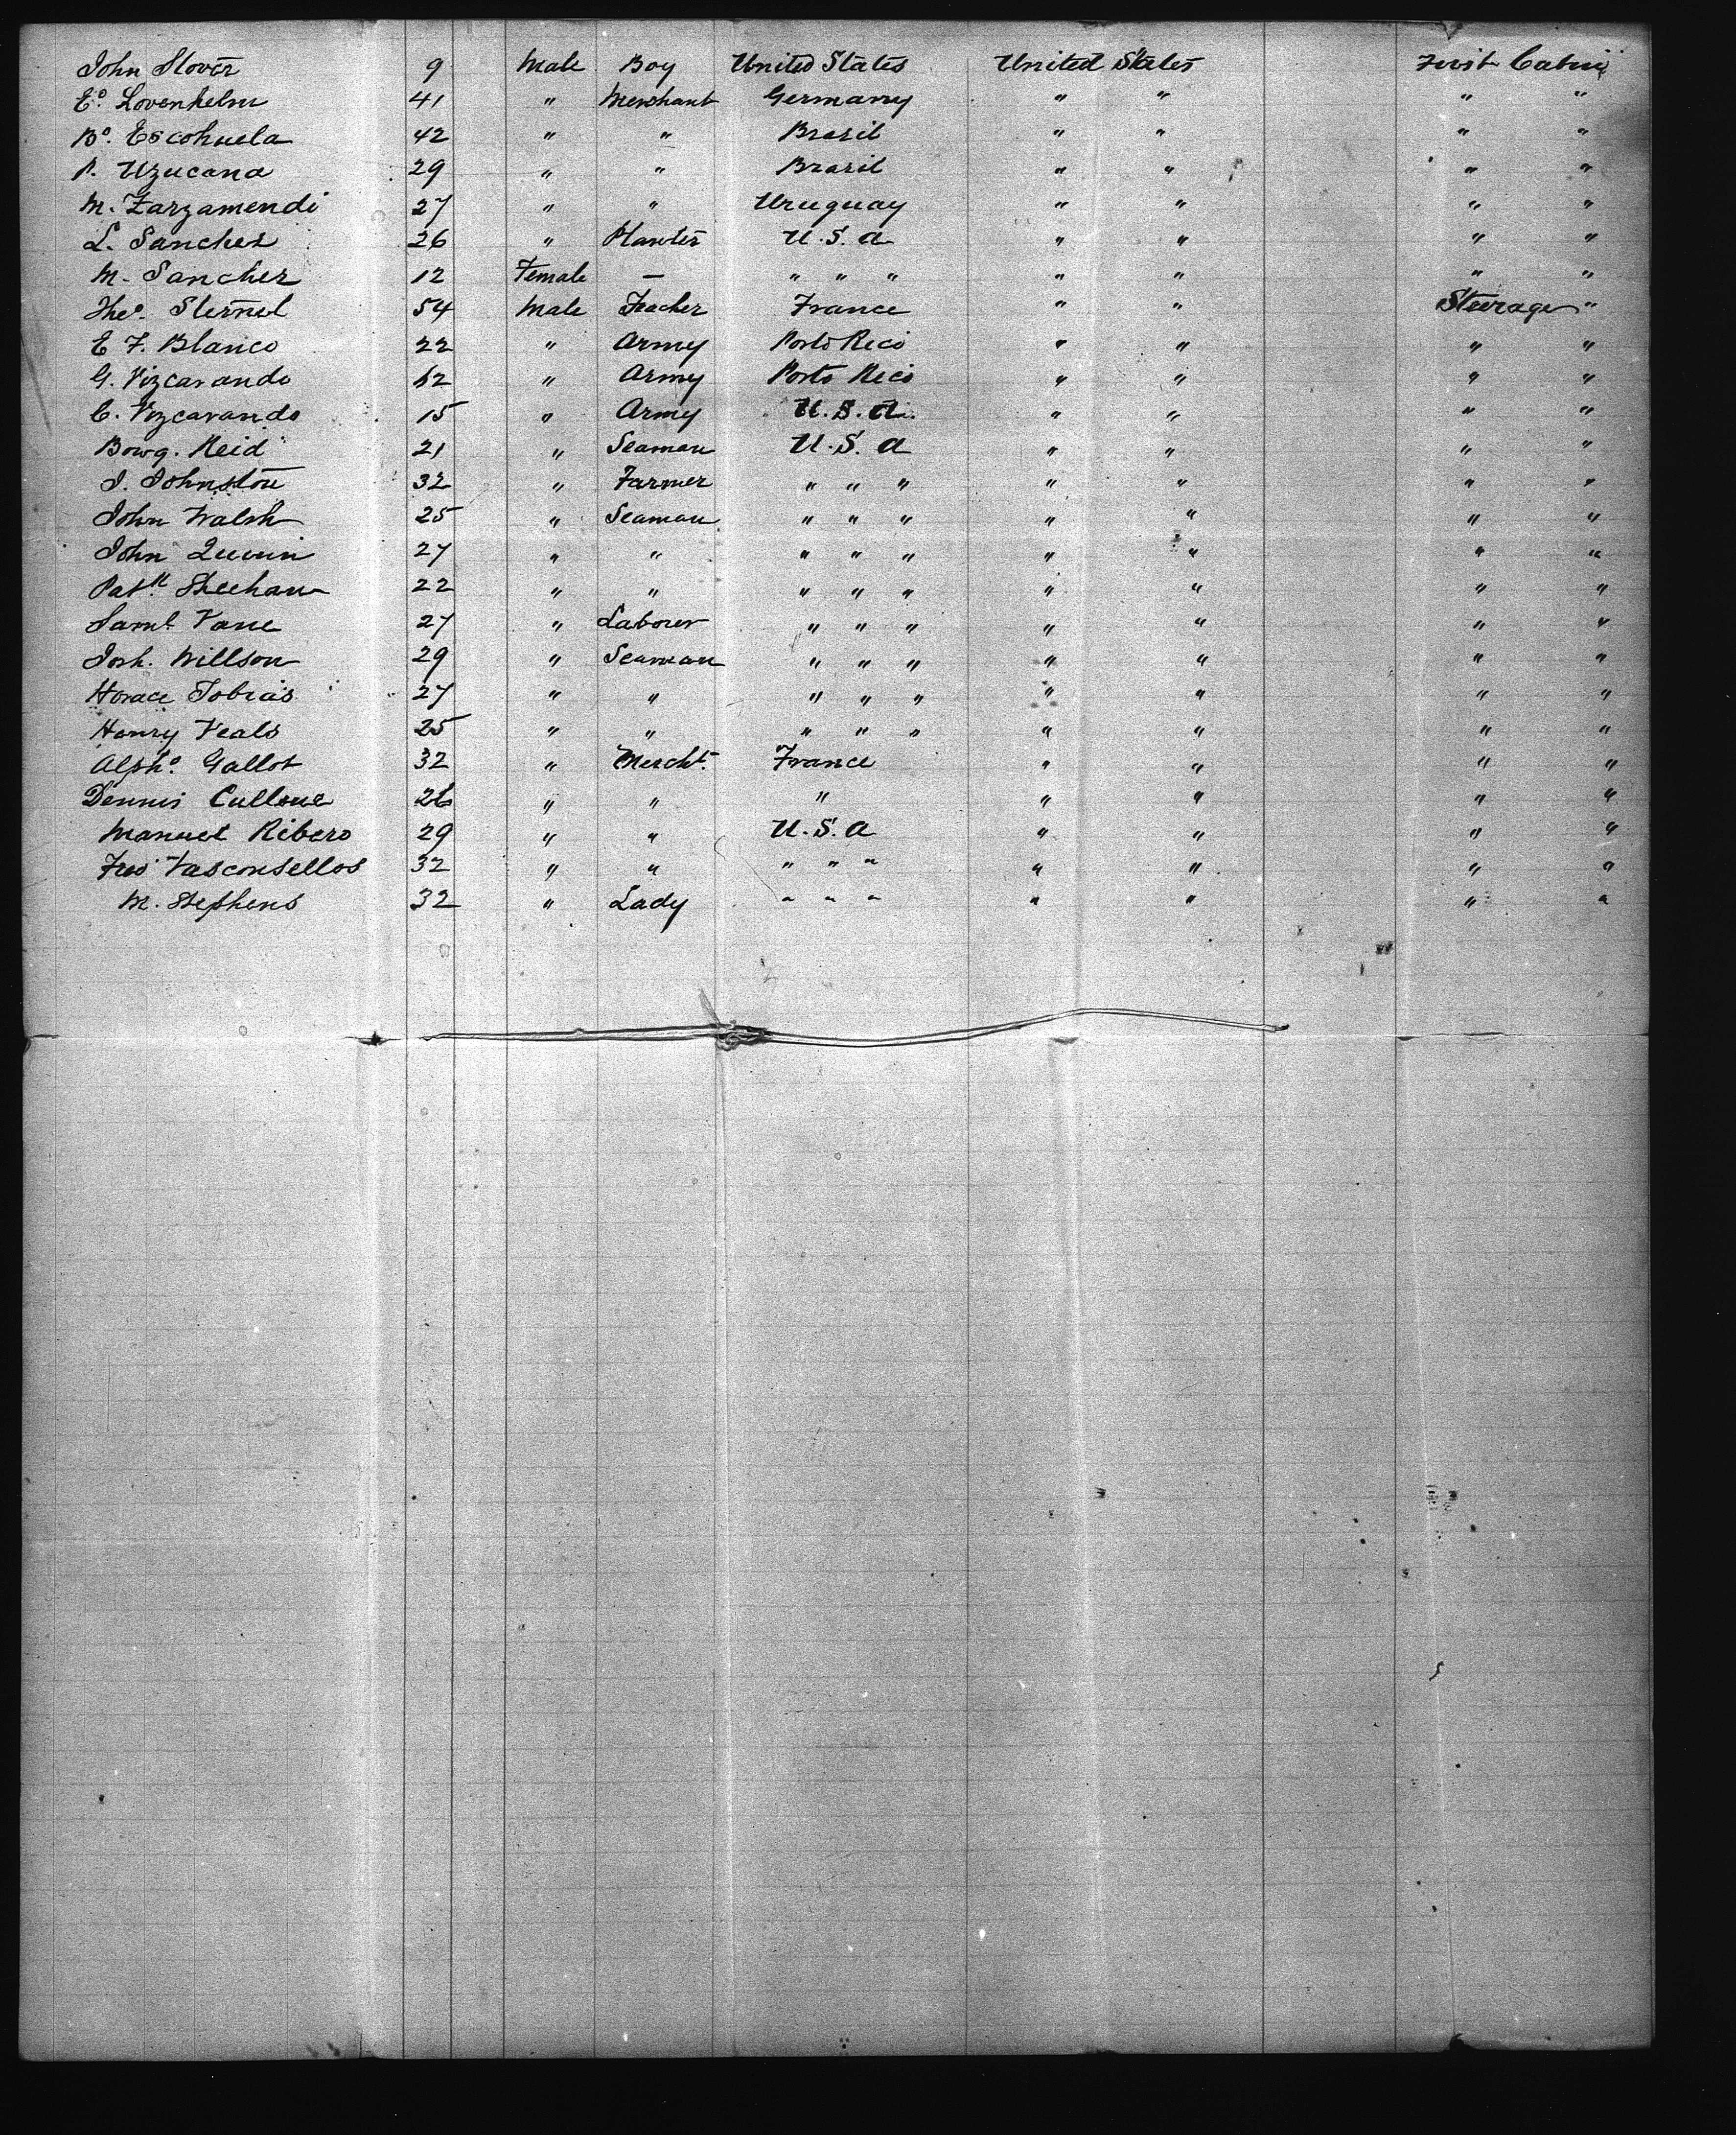 John Stover 9 Male Boy United States United States First Cabin
E.º Lovenhelm 41 " Merchant Germany " " " "
B.º Escohuela 42 " " Brasil " " " "
P. Uzucana 29 " " Brasil " " " "
M. Zarzamendi 27 " " Uruguay " " " "
L. Sanches 26 " Planter U.S.A " " " "
M. Sanches 12 Female — " " " " " " "
Theº. Sternel 54 Male Teacher France " " Steerage "
E F. Blanco 22 " Army Porto Rico " " " "
G. Vizcarando 62 " Army Porto Rico " " " "
C. Vizcarando 15 " Army U.S.A. " " " "
Bowg. Reid 21 " Seaman U.S.A " " " "
J. Johnston 32 " Farmer " " " " " " "
John Walsh 25 " Seaman " " " " " " "
John 27 " " " " " " " " "
Patk. Sheehan 22 " " " " " " " " "
Saml. Vane 27 " Laborer " " " " " " "
Josh. Willson 29 " Seaman " " " " " " "
Horace Tobias 27 " " " " " " " " "
Henry Veals 25 " " " " " " " " "
Alphº. Gallot 32 " Mercht. France " " " "
Dennis Cullone 26 " " " " " " "
Manuel Ribero 29 " " U.S.A " " " "
Fres Vasconsellos 32 " " " " " " " " "
M. Stephens 32 " Lady " " " " " " "